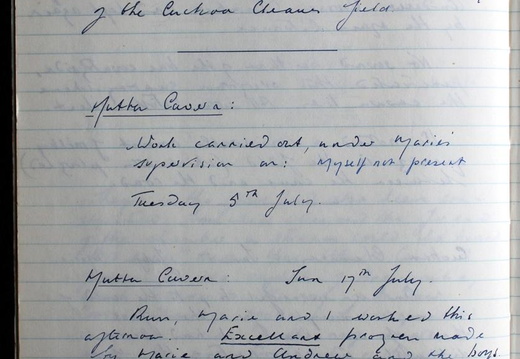 of the Cuckoo Cleaves field.
Mutter Cavern:
Work carried out, under Marie's
supervision on: Myself not present
Tuesday 5th July.
Mutter Cavern: Sun 17th July.
Marie and I worked this
afternoon. Excellent progress made
Marie and Andrew and the boys